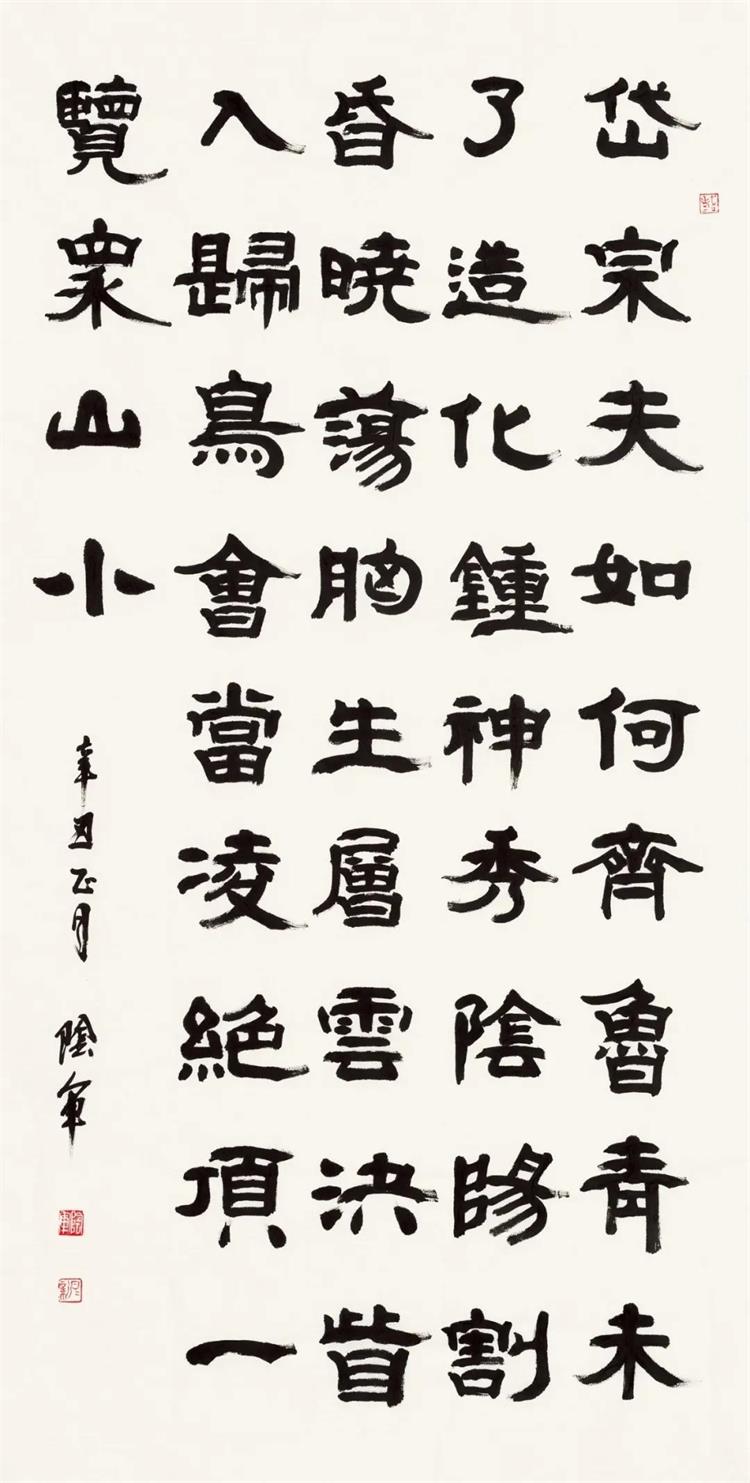 岱宗夫如何齊魯青未
了造化鍾神秀陰陽割
昏曉蕩胸生層雲決眥
入歸鳥會當凌絕頂一
覽衆山小
辛丑正月 陰軍
陰軍